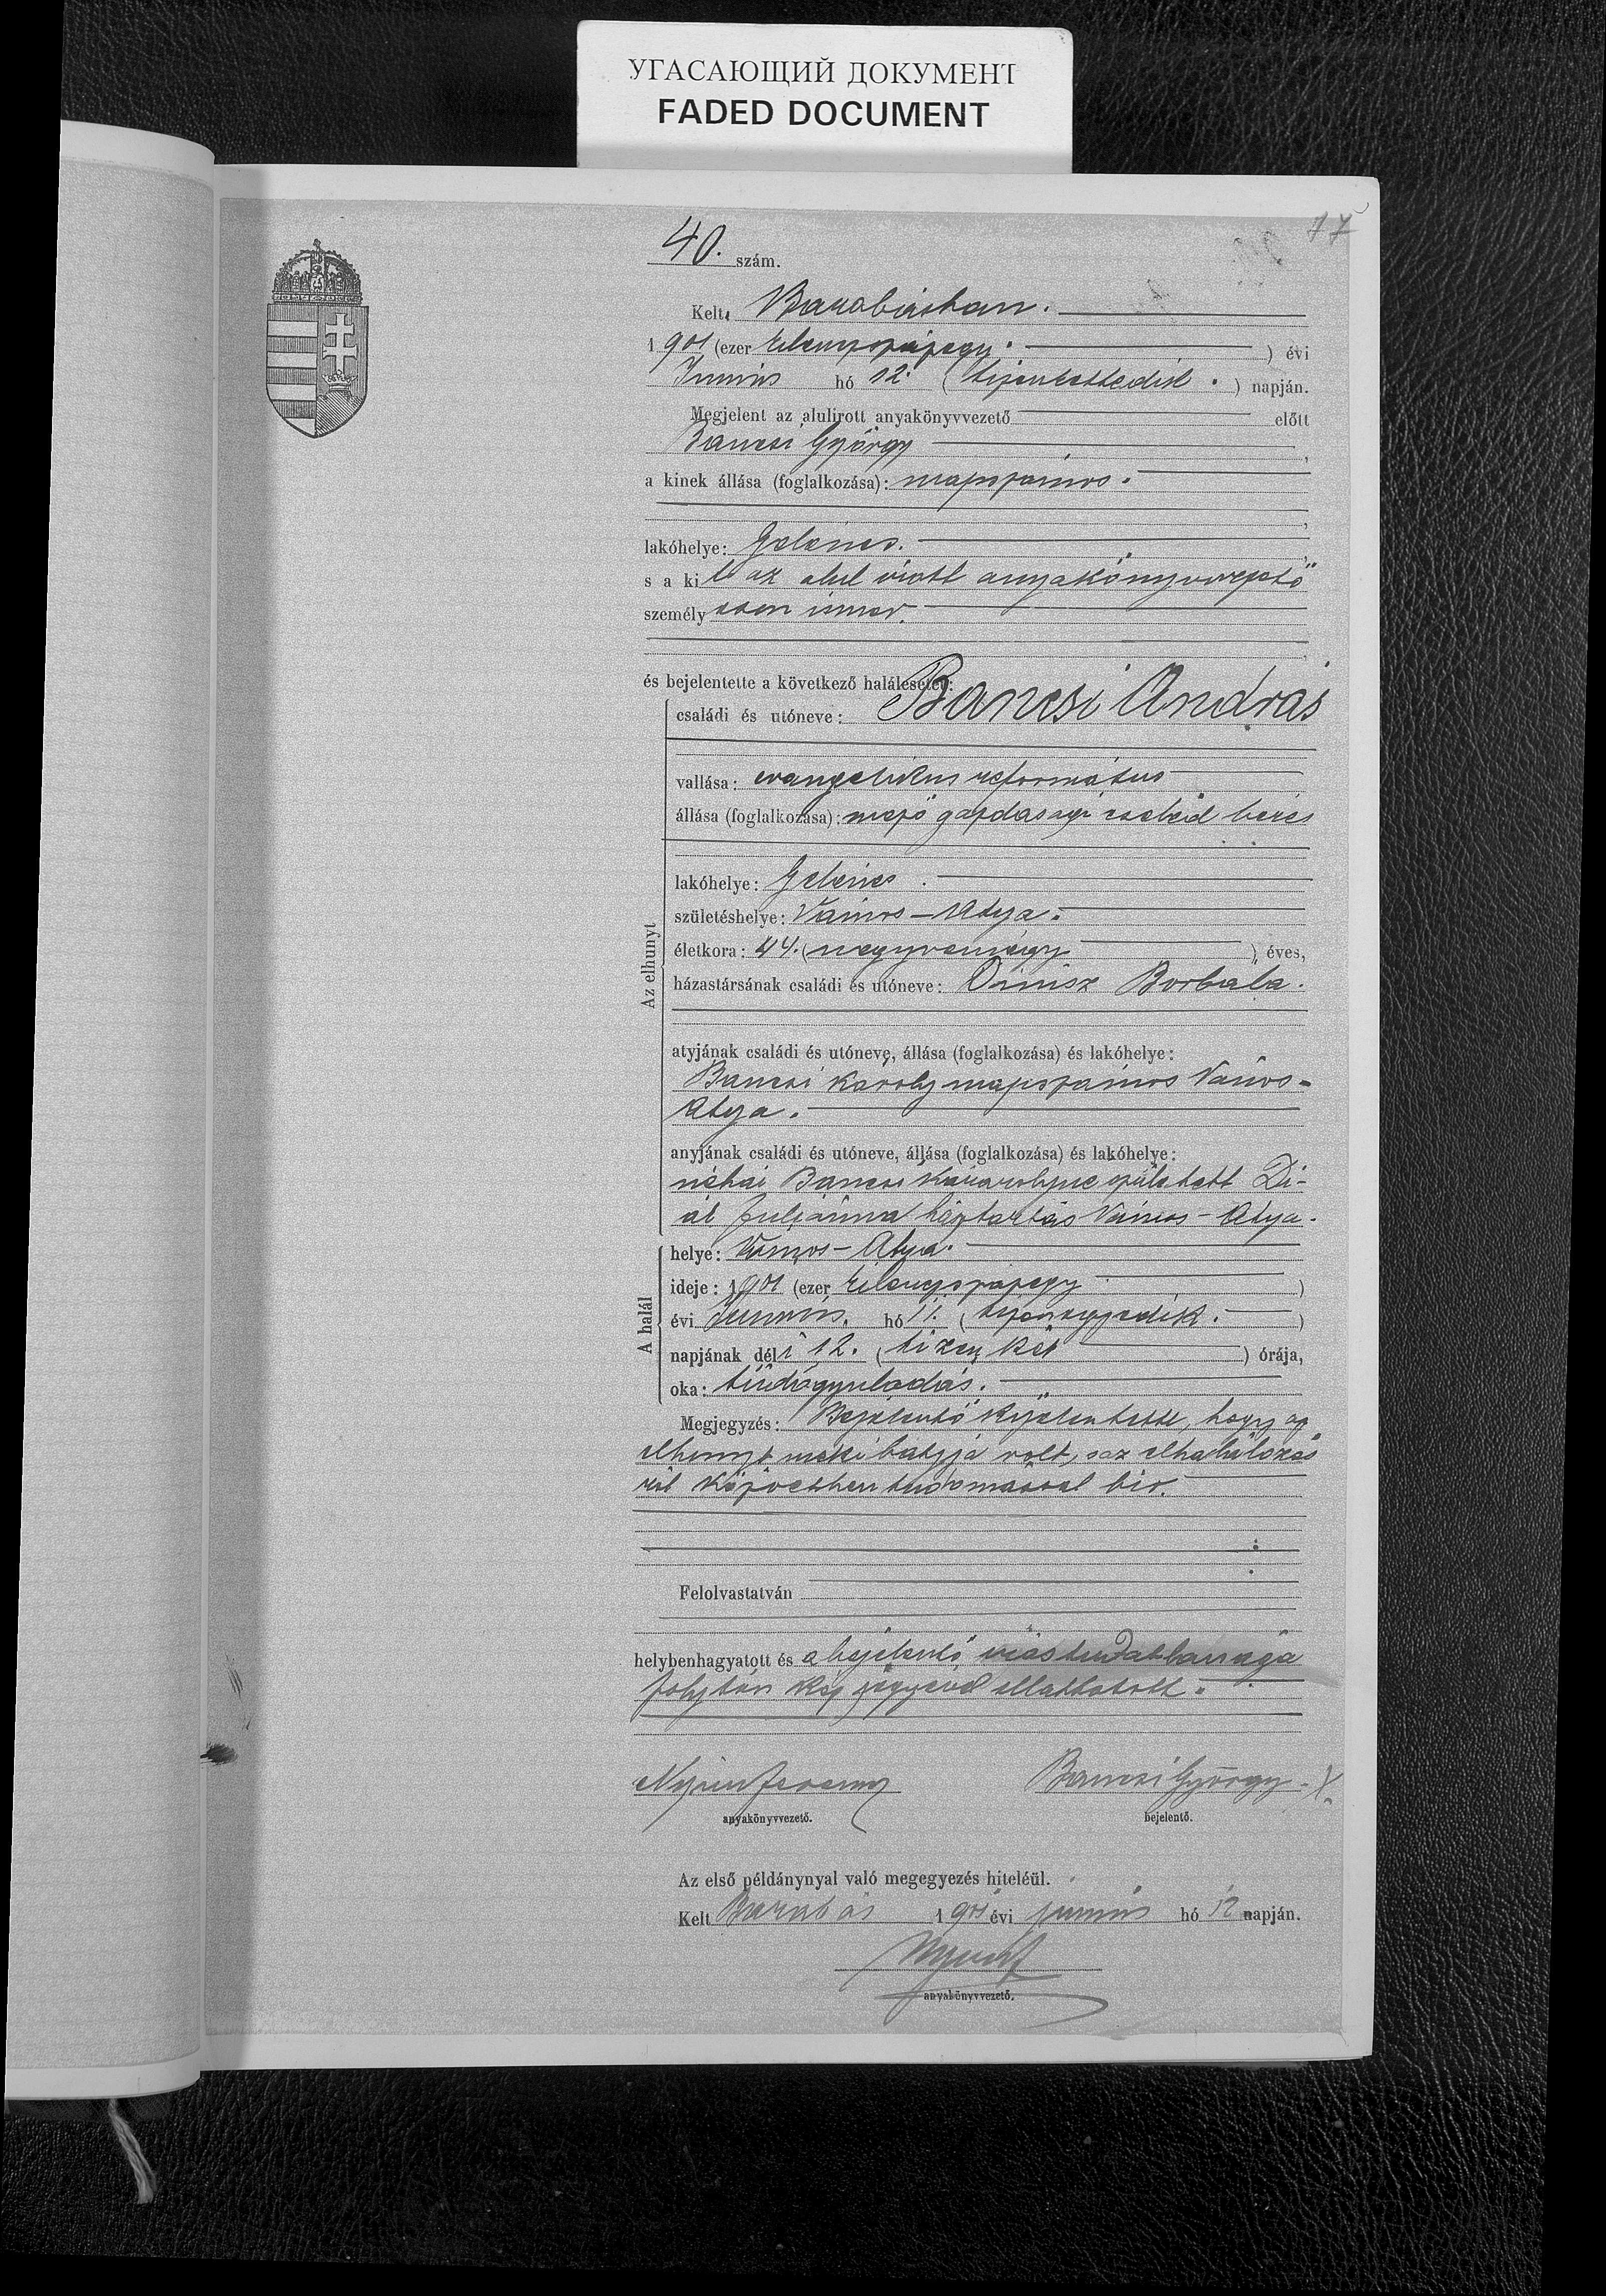 УГАСАЮЩИЙ ДОКУМЕНТ
FADED DOCUMENT
77
40. szám.
Kelt, Barabásban.
1901 (ezer kilenczszázegy.) évi
Junius hó 12. (tizenkettedik.) napján.
Megjelent az alulirott anyakönyvvezető előtt
Bancsi György,
a kinek állása (foglalkozása): napszámos.
lakóhelye: Gelénes.
s a kit az alul irott anyakönyvvezető
személyesen ismer.
és bejelentette a következő halálesetet:
Az elhunyt
családi és utóneve: Bancsi András
vallása: evangelikus református
állása (foglalkozása): mező gazdasági cseléd béres
lakóhelye: Gelénes.
születéshelye: Vámos-Atya.
életkora: 44. (negyvennégy) éves,
házastársának családi és utóneve: Borbala.
atyjának családi és utóneve, állása (foglalkozása) és lakóhelye:
Bancsi Károly napszámos Vámos-
Atya.
anyjának családi és utóneve, állása (foglalkozása) és lakóhelye:
néhai Bancsi született Di-
ál Juliánna háztartás Vámos-Atya.
A halál
helye: Vámos-Atya.
ideje: 1901 (ezer kilenczszázegy)
évi Junius. hó 11. (tizenegyedik.)
napjának déli 12. (tizenkét) órája,
oka: tüdőgyuladás.
Megjegyzés: Bejelentő kijelentette, hogy az
elhunyt neki bátyja volt, s az elhalálozás
ról közvetlen tudomással bir.
Felolvastatván
helybenhagyatott és a bejelentő irástudatlansága
folytán kézjegyével ellátotott.
Ferencz
Bancsi György X
anyakönyvvezető.
bejelentő.
Az első példánynyal való megegyezés hiteléül.
Kelt Barabás 1901 évi junius hó 12 napján.
anyakönyvvezető.